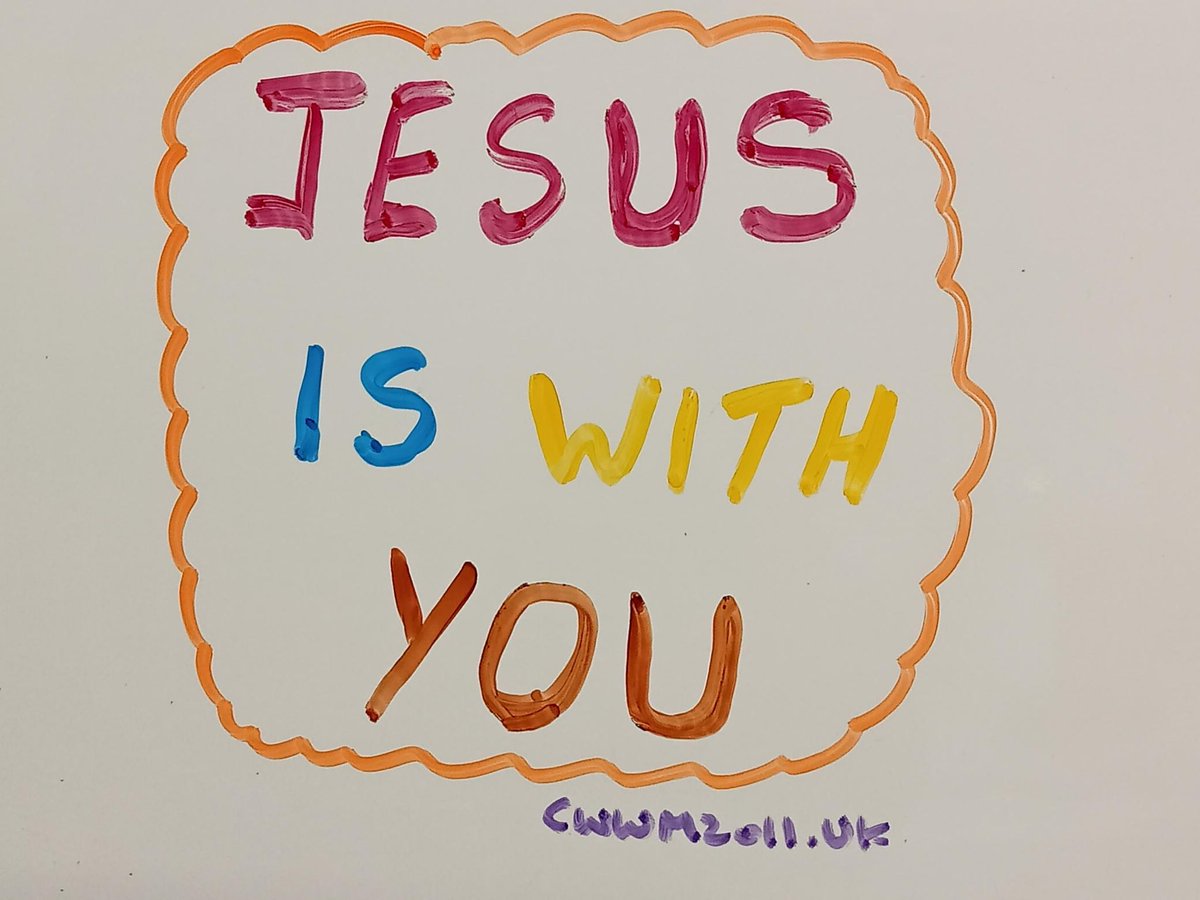 JESUS
IS WITH
YOU
CWWM2011.UK